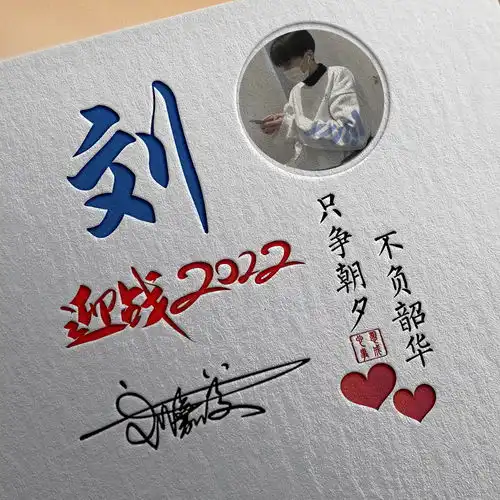 刘
迎战2022
只争朝夕
不负韶华